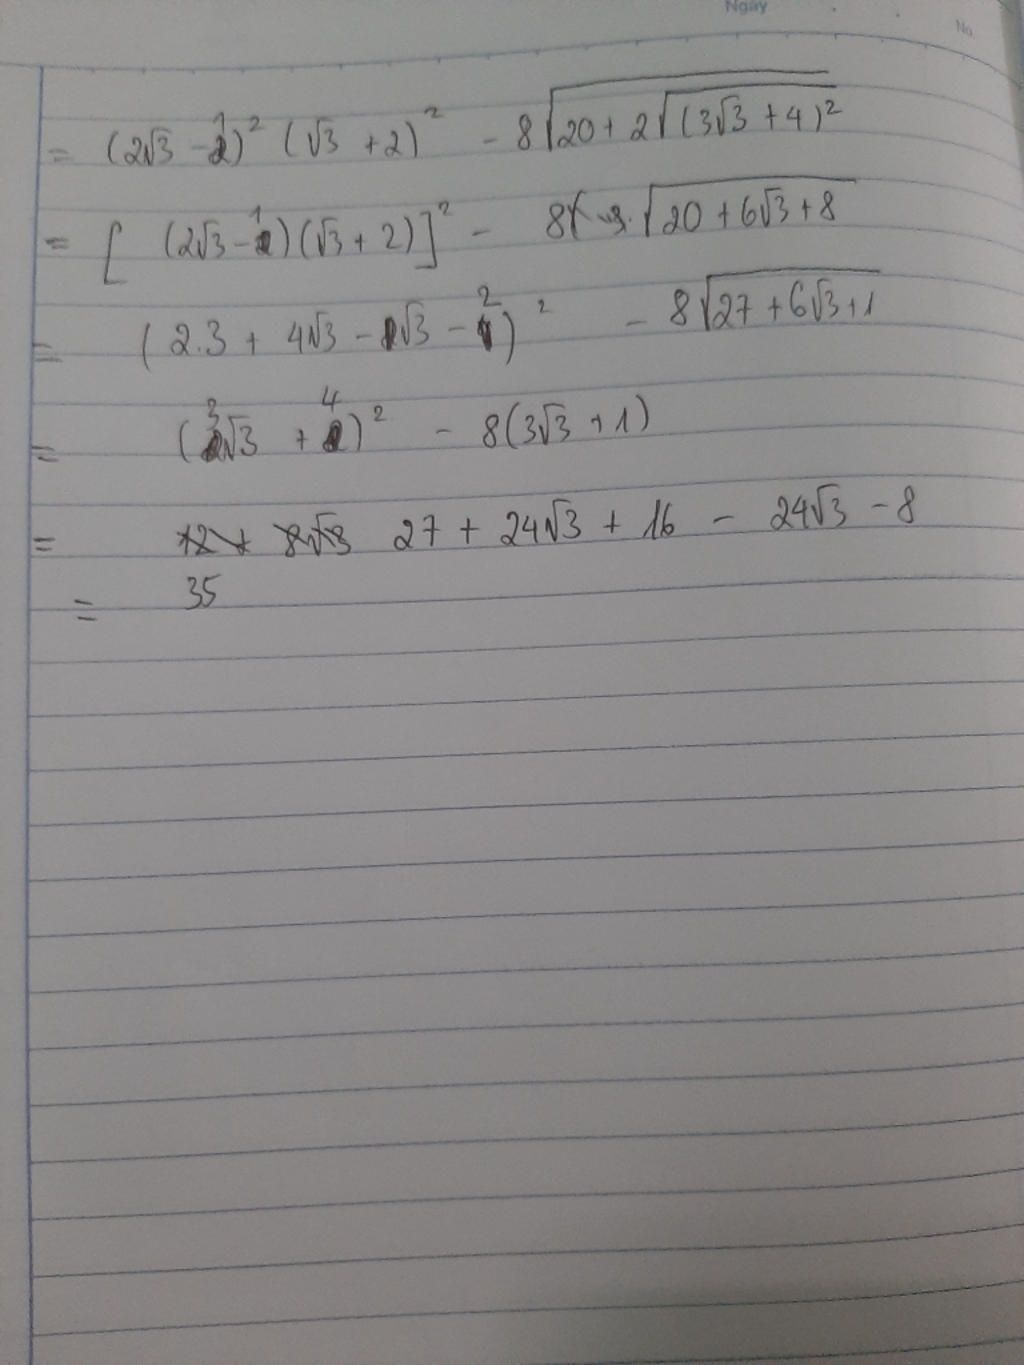 Ngày
No.
= (2√3 - 1)² (√3 + 2)² - 8√(20 + 2√((3√3 + 4)²))
= [(2√3 - 1)(√3 + 2)]² - 8√(20 + 6√3 + 8)
= (2.3 + 4√3 - √3 - 2)² - 8√(27 + 6√3 + 1)
= (3√3 + 4)² - 8(3√3 + 1)
= 27 + 24√3 + 16 - 24√3 - 8
= 35